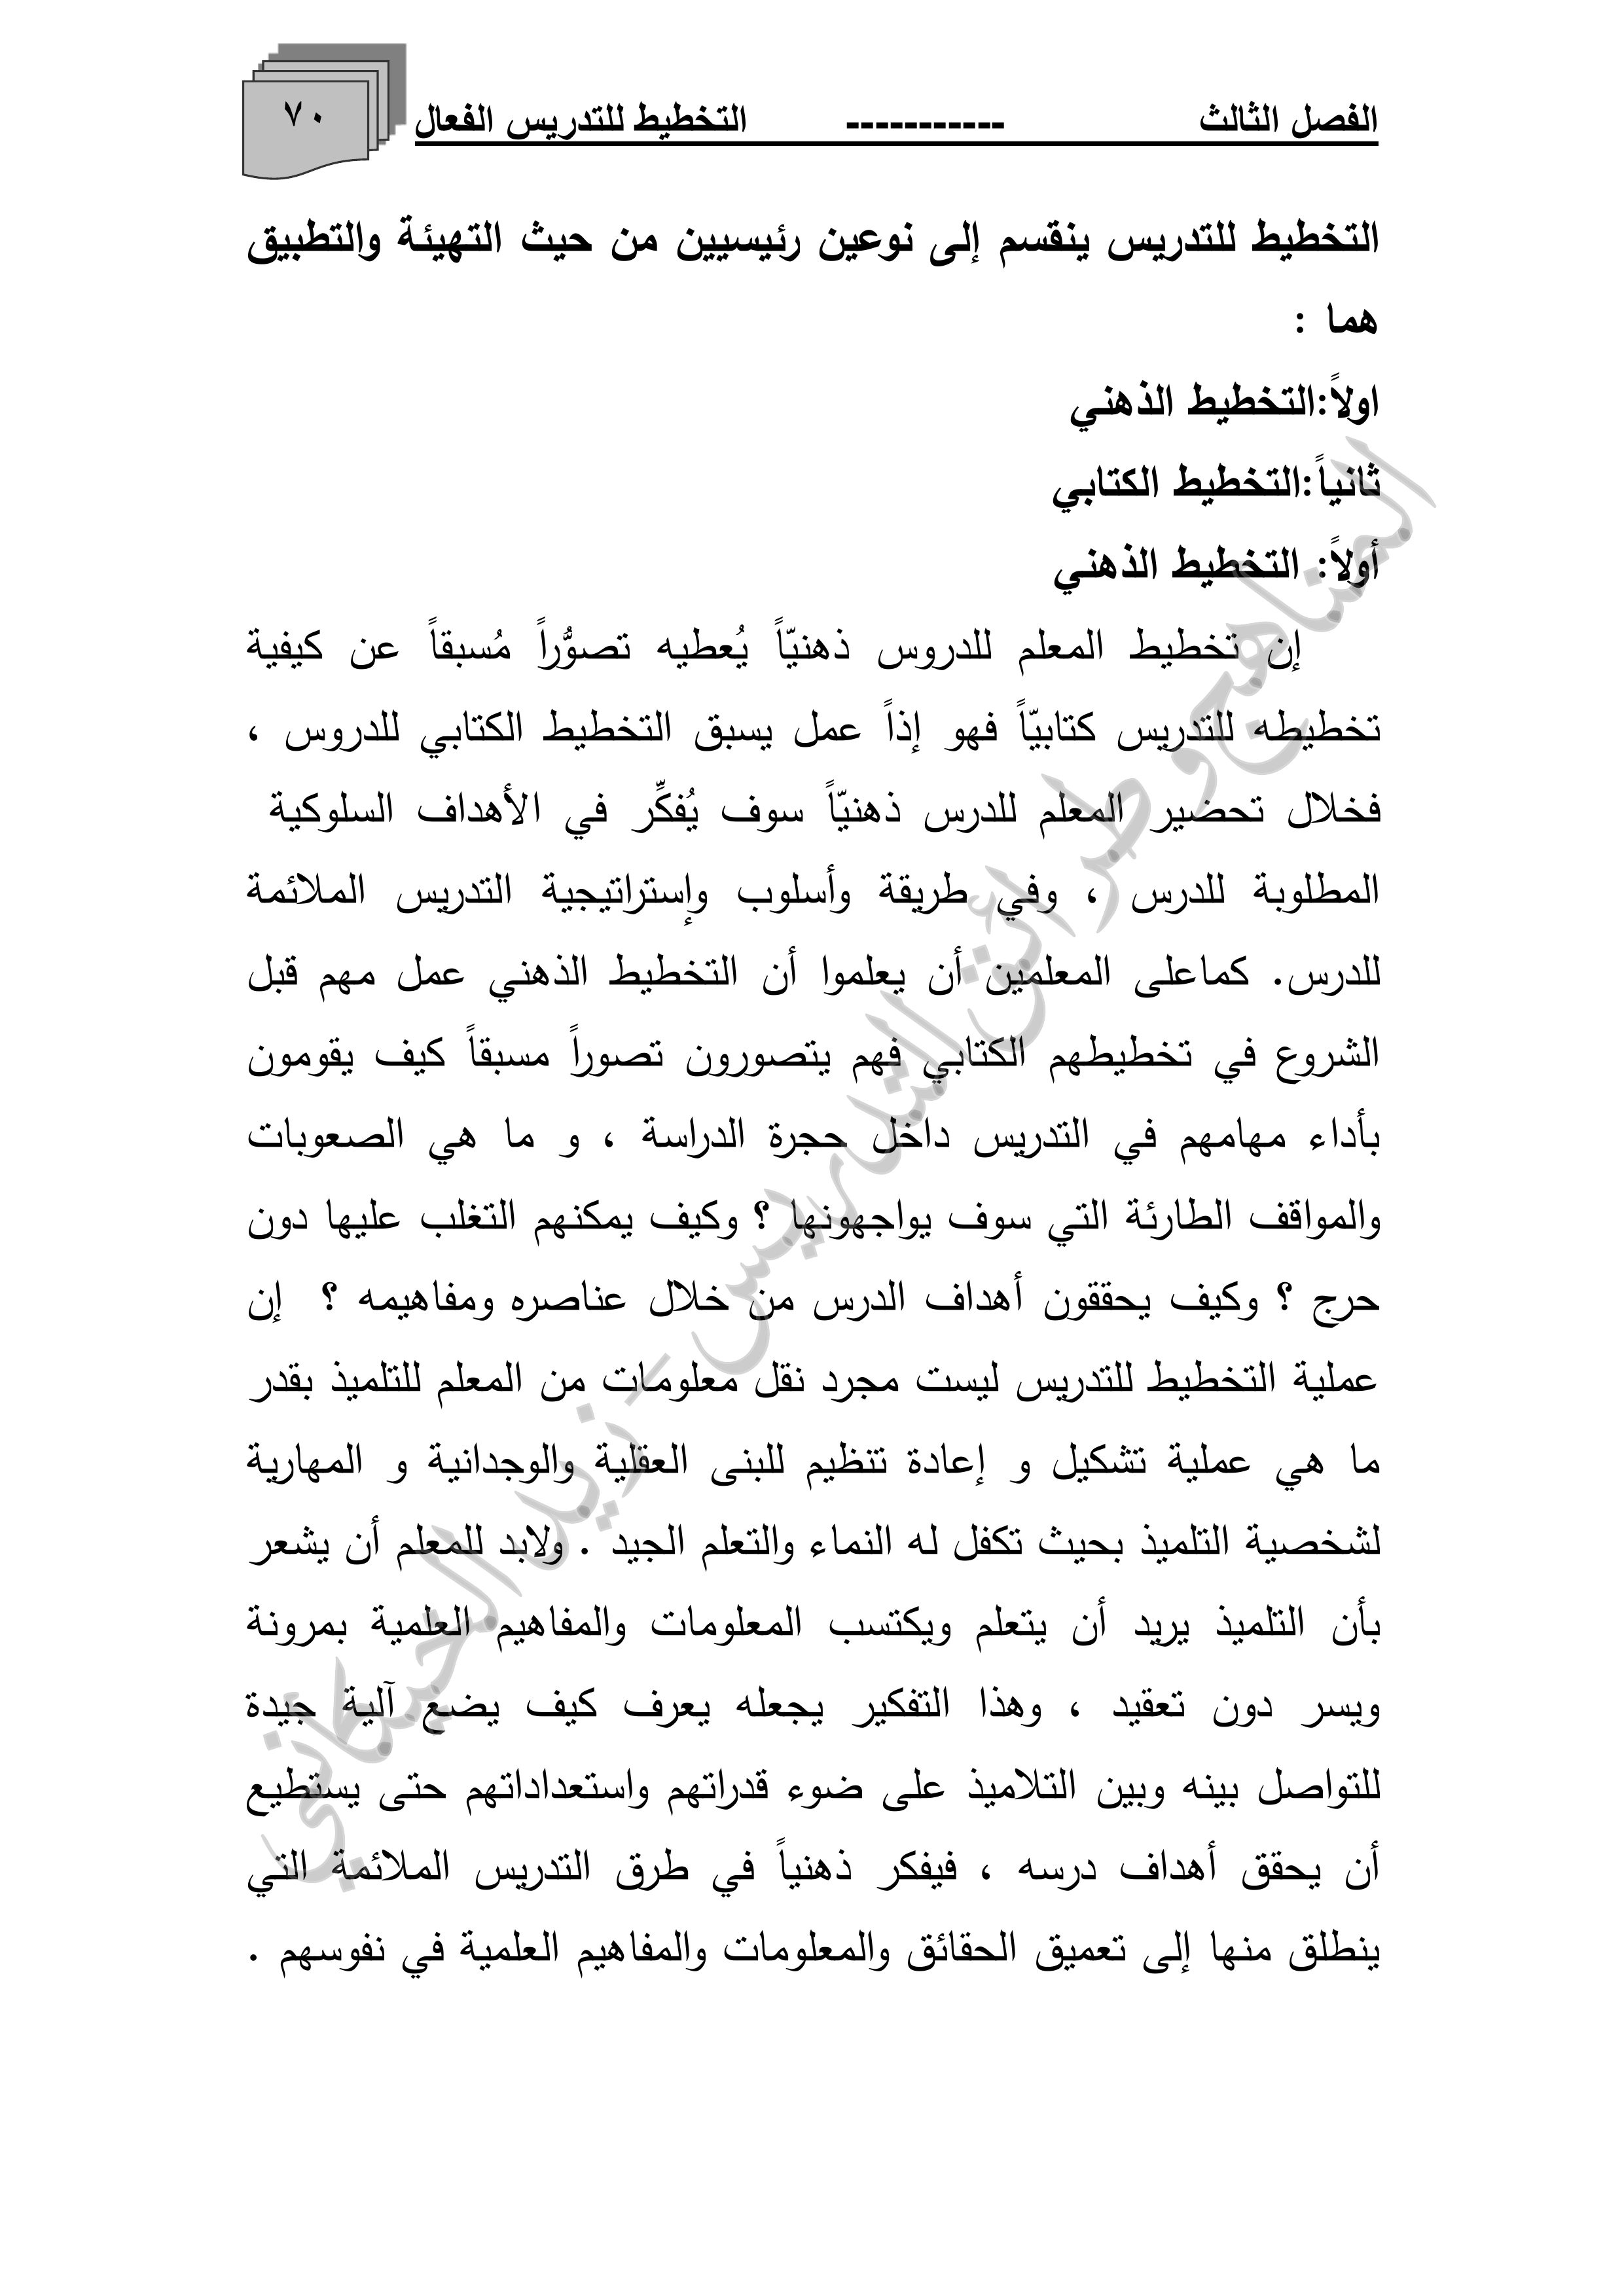 الفصل الثالث ----------- التخطيط للتدريس الفعال
٧٠
التخطيط للتدريس ينقسم إلى نوعين رئيسيين من حيث التهيئة والتطبيق
هما :
اولاً:التخطيط الذهني
ثانياً:التخطيط الكتابي
أولاً: التخطيط الذهني
إن تخطيط المعلم للدروس ذهنيّاً يُعطيه تصوُّراً مُسبقاً عن كيفية
تخطيطه للتدريس كتابيّاً فهو إذاً عمل يسبق التخطيط الكتابي للدروس ،
فخلال تحضير المعلم للدرس ذهنيّاً سوف يُفكِّر في الأهداف السلوكية
المطلوبة للدرس ، وفي طريقة وأسلوب وإستراتيجية التدريس الملائمة
للدرس. كماعلى المعلمين أن يعلموا أن التخطيط الذهني عمل مهم قبل
الشروع في تخطيطهم الكتابي فهم يتصورون تصوراً مسبقاً كيف يقومون
بأداء مهامهم في التدريس داخل حجرة الدراسة ، و ما هي الصعوبات
والمواقف الطارئة التي سوف يواجهونها ؟ وكيف يمكنهم التغلب عليها دون
حرج ؟ وكيف يحققون أهداف الدرس من خلال عناصره ومفاهيمه ؟ إن
عملية التخطيط للتدريس ليست مجرد نقل معلومات من المعلم للتلميذ بقدر
ما هي عملية تشكيل و إعادة تنظيم للبنى العقلية والوجدانية و المهارية
لشخصية التلميذ بحيث تكفل له النماء والتعلم الجيد . ولابد للمعلم أن يشعر
بأن التلميذ يريد أن يتعلم ويكتسب المعلومات والمفاهيم العلمية بمرونة
ويسر دون تعقيد ، وهذا التفكير يجعله يعرف كيف يضع آلية جيدة
للتواصل بينه وبين التلاميذ على ضوء قدراتهم واستعداداتهم حتى يستطيع
أن يحقق أهداف درسه ، فيفكر ذهنياً في طرق التدريس الملائمة التي
ينطلق منها إلى تعميق الحقائق والمعلومات والمفاهيم العلمية في نفوسهم .
المناهج و طرائق التدريس - زيد الخيكاني